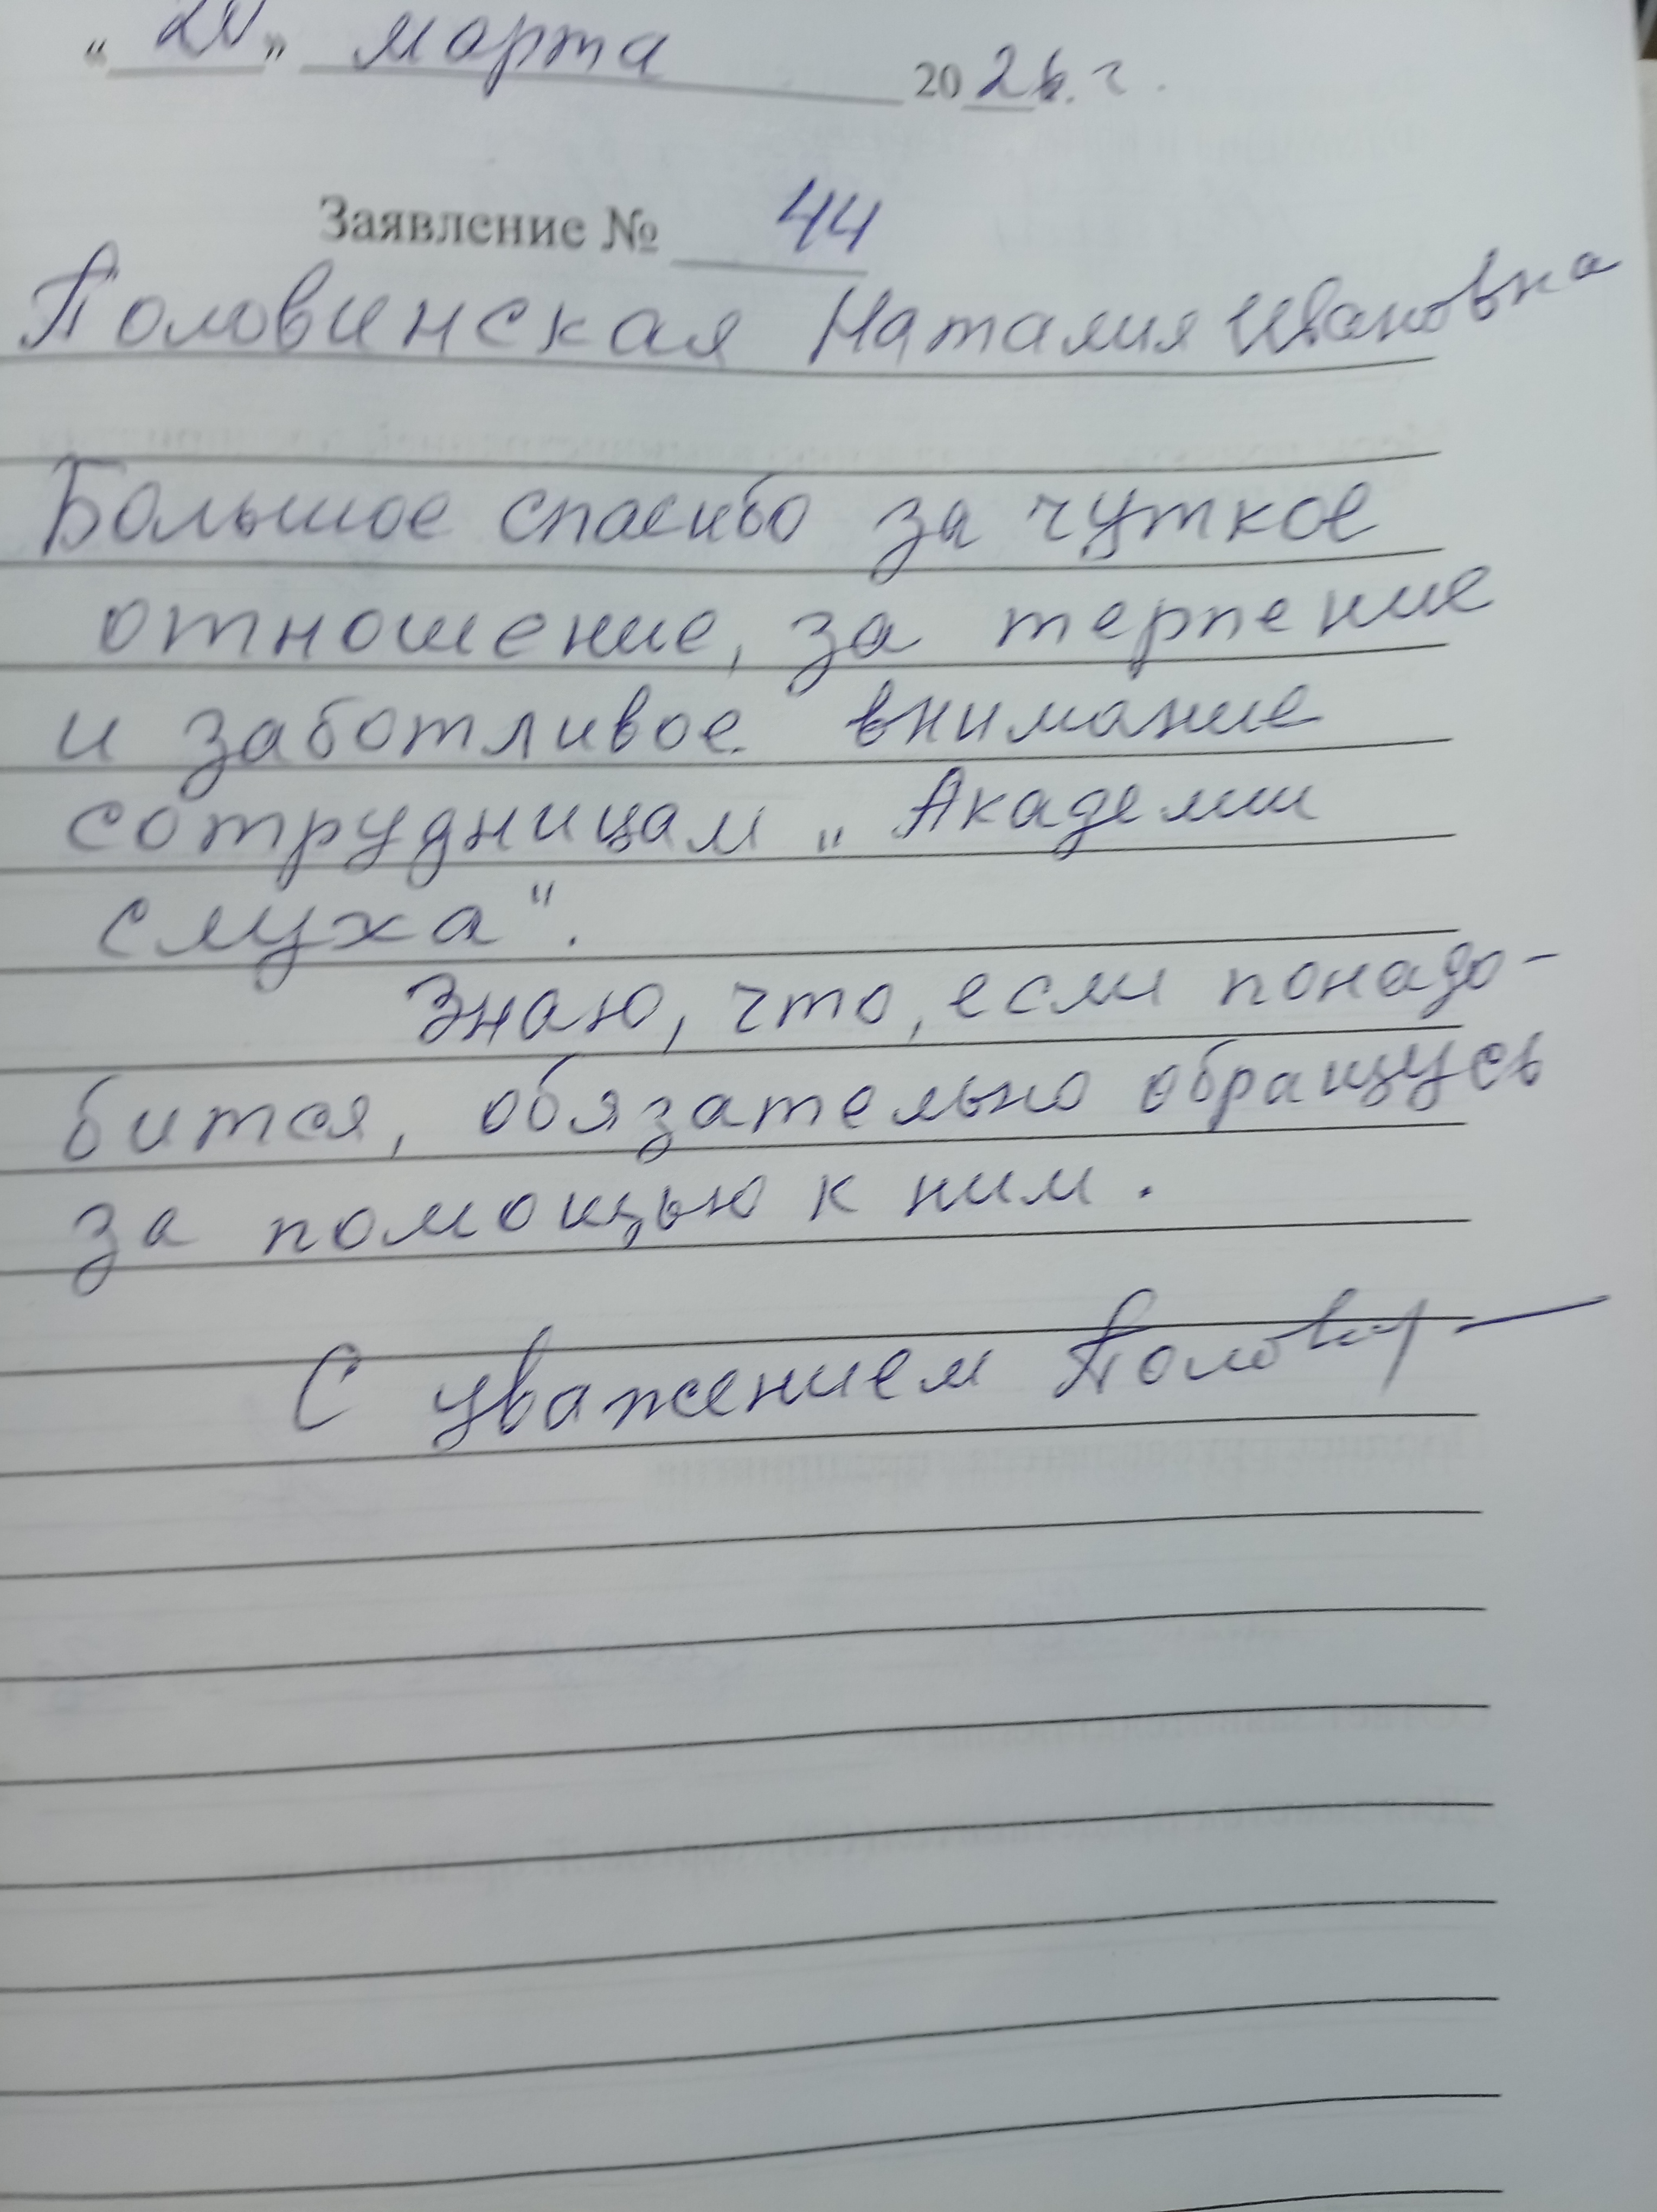 « 20 » марта 2026 г.
Заявление № 44
Половинская Наталия Ивановна
Большое спасибо за чуткое
отношение, за терпение
и заботливое внимание
сотрудницам „Академии
слуха".
Знаю, что, если понадо-
бится, обязательно обращусь
за помощью к ним.
С уважением